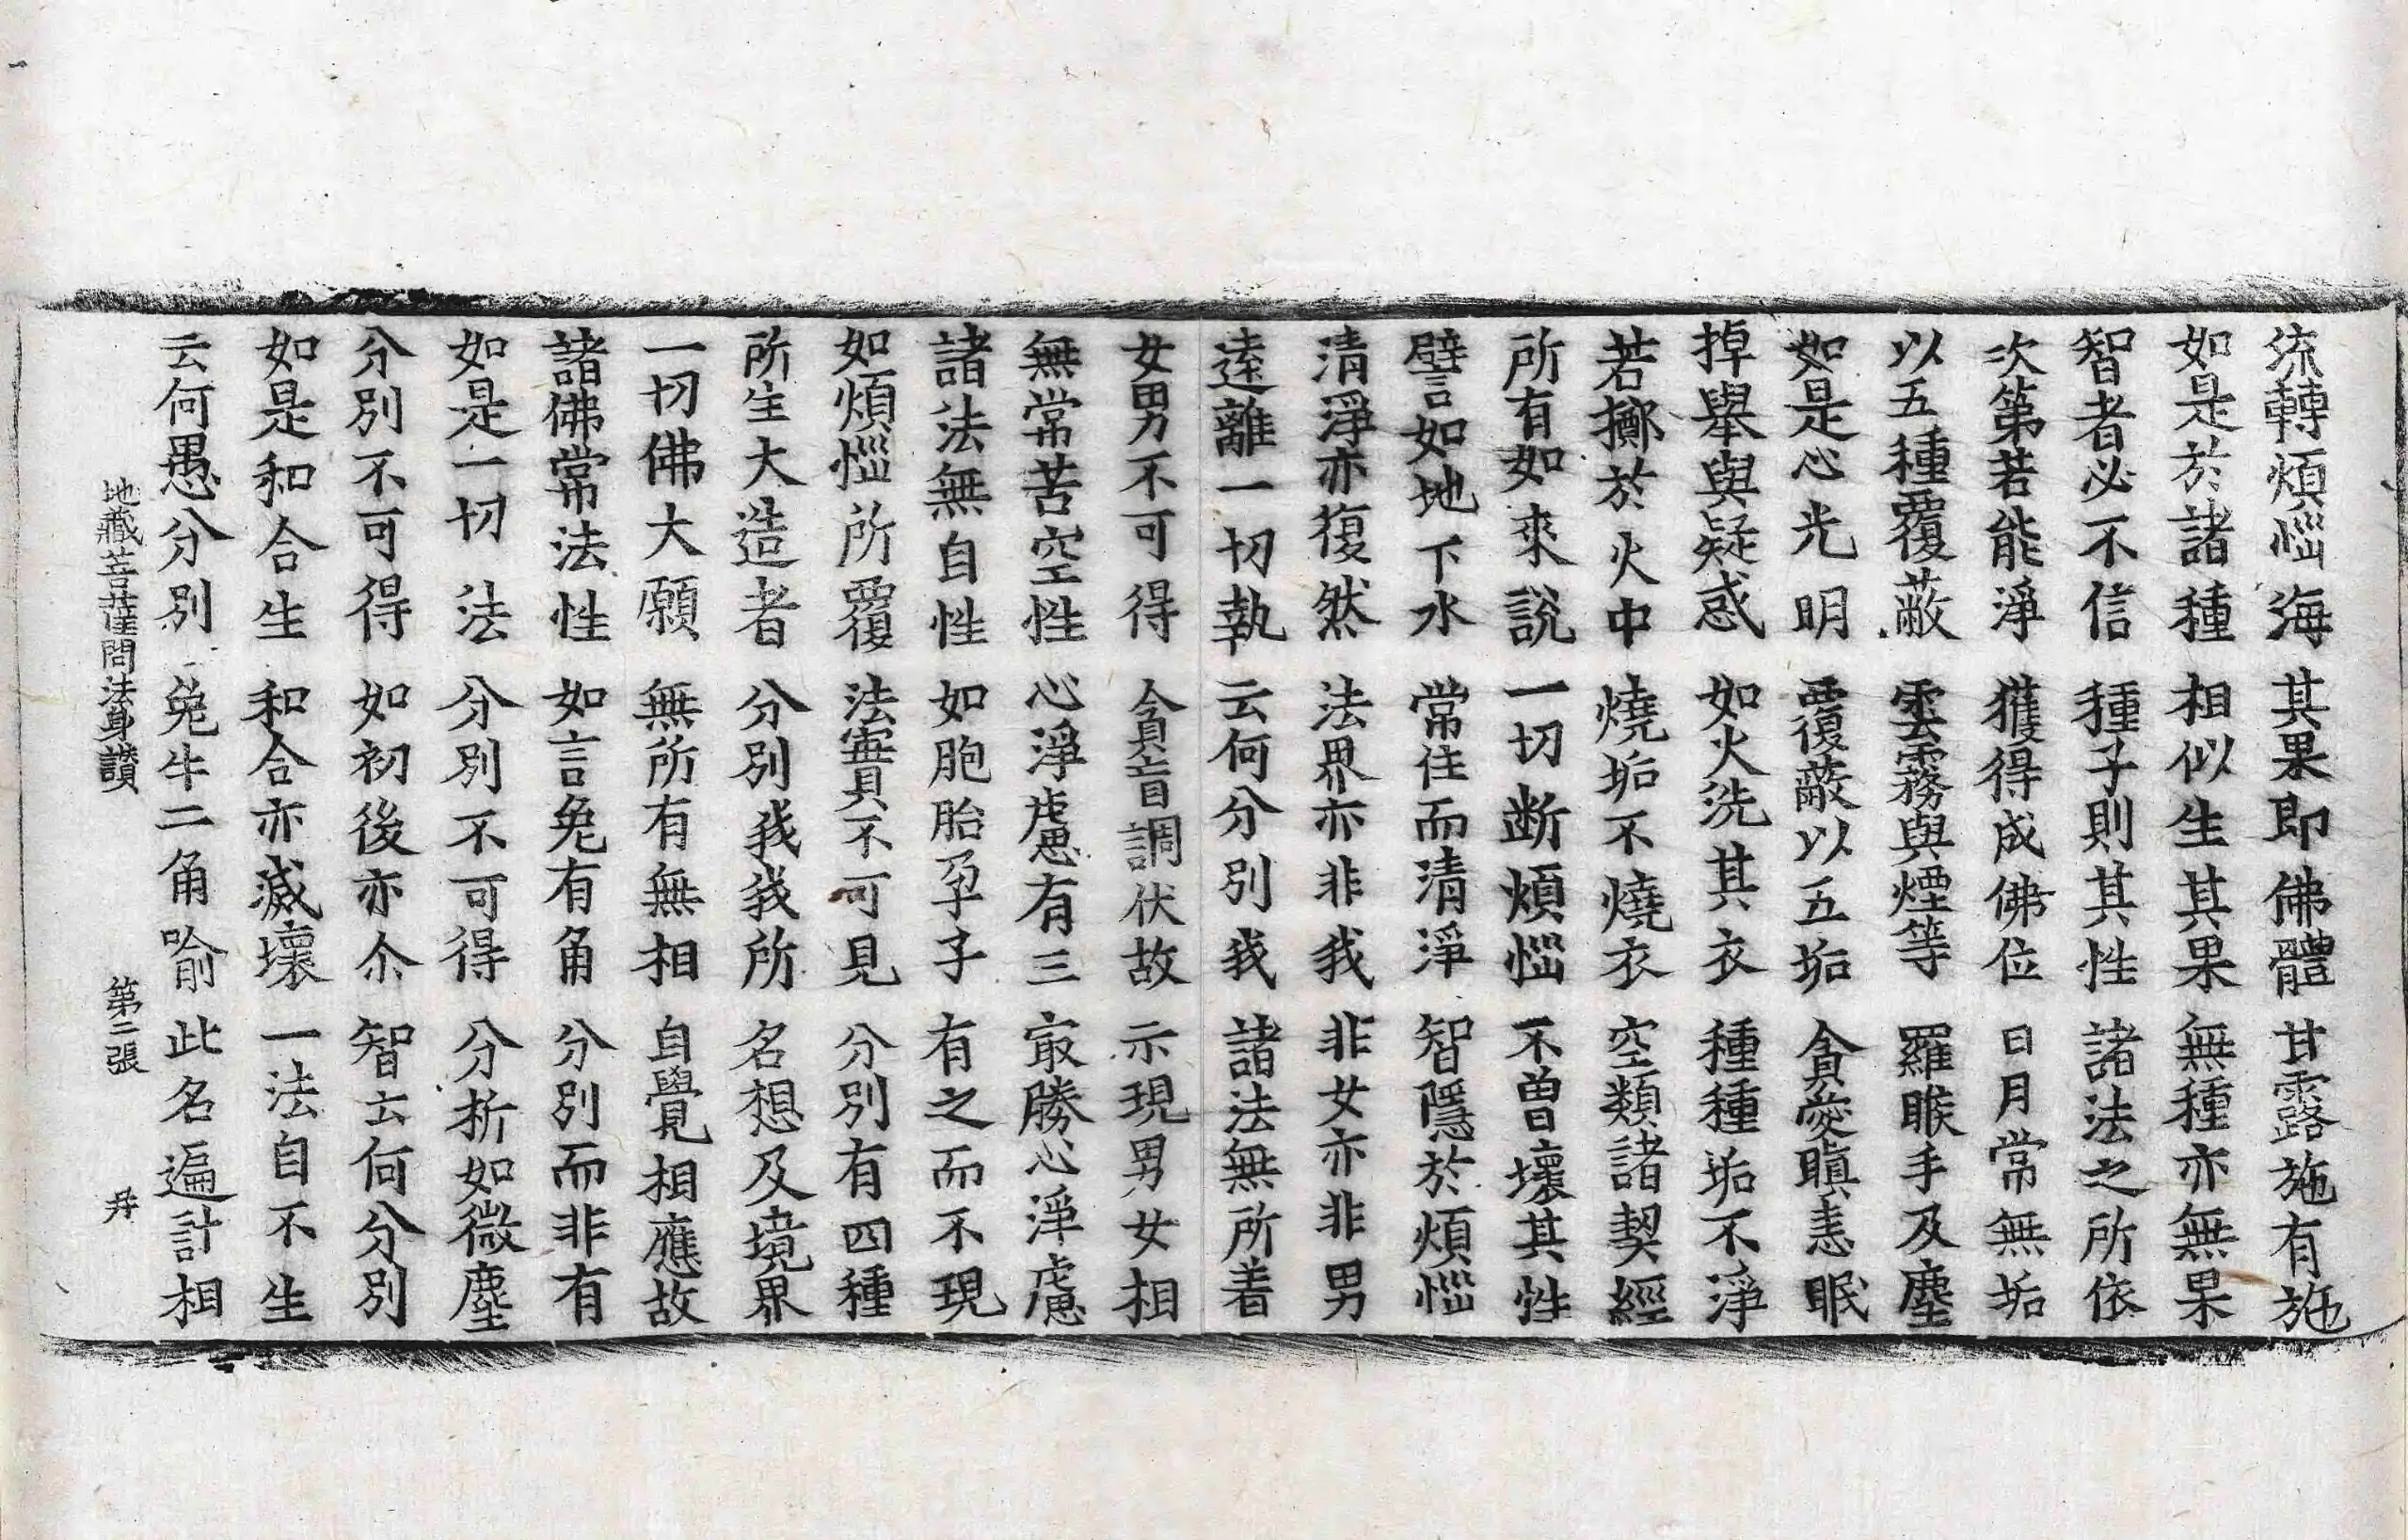 流轉煩惱海 其果即佛體 甘露施有施
如是於諸種 相似生其果 無種亦無果
智者必不信 種子則其性 諸法之所依
次第若能淨 獲得成佛位 日月常無垢
以五種覆蔽 雲霧與煙等 羅睺手及塵
如是心光明 覆蔽以五垢 貪愛瞋恚眠
掉舉與疑惑 如火洗其衣 種種垢不淨
若擲於火中 燒垢不燒衣 空類諸契經
所有如來說 一切断煩惱 不曾壞其性
譬如地下水 常住而清淨 智隱於煩惱
清淨亦復然 法界亦非我 非女亦非男
遠離一切執 云何分別我 諸法無所着
女男不可得 貪盲調伏故 示現男女相
無常苦空性 心淨慮有三 㝡勝心淨慮
諸法無自性 如胞胎孕子 有之而不現
如煩惱所覆 法實不可見 分別有四種
所生大造者 分別我我所 名想及境界
一切佛大願 無所有無相 自覺相應故
諸佛常法性 如言兔有角 分別而非有
如是一切法 分別不可得 分析如微塵
分別不可得 如初後亦尒 智云何分別
如是和合生 和合亦滅壞 一法自不生
云何愚分別 兔牛二角喻 此名遍計相
地藏菩薩問法身讚 第二張